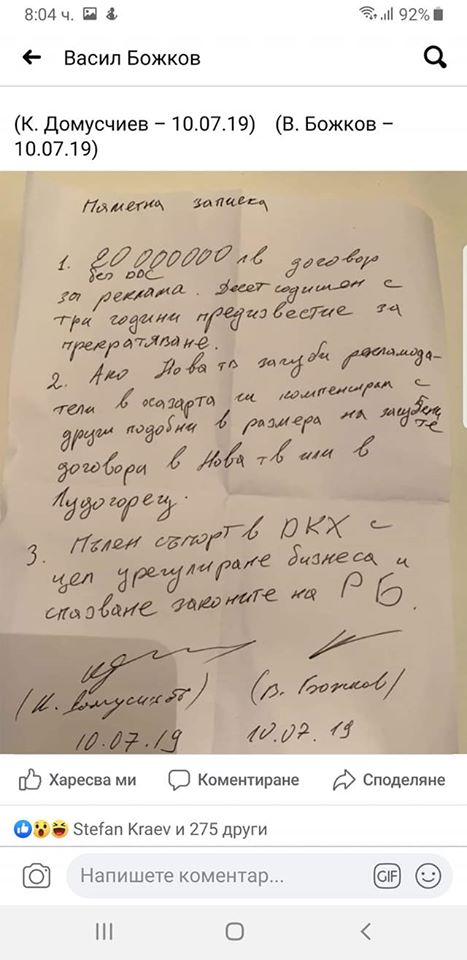 8:04 ч. 92%
Васил Божков
(К. Домусчиев – 10.07.19) (В. Божков –
10.07.19)
Паметна записка
1. 20 000000 лв договор
без ДДС
за реклама. Десет годишен с
три години предизвестие за
прекратяване.
2. Ако Нова тв загуби рекламода-
тели в хазарта ги компенсирам с
други подобни в размера на загубените
договора в Нова тв или в
Лудогорец.
3. Пълен съпорт в ДКХ с
цел урегулиране бизнеса и
спазване законите на РБ.
(К. Домусчиев) (В. Божков)
10.07.19 10.07.19
Харесва ми Коментиране Споделяне
Stefan Kraev и 275 други
Напишете коментар... GIF